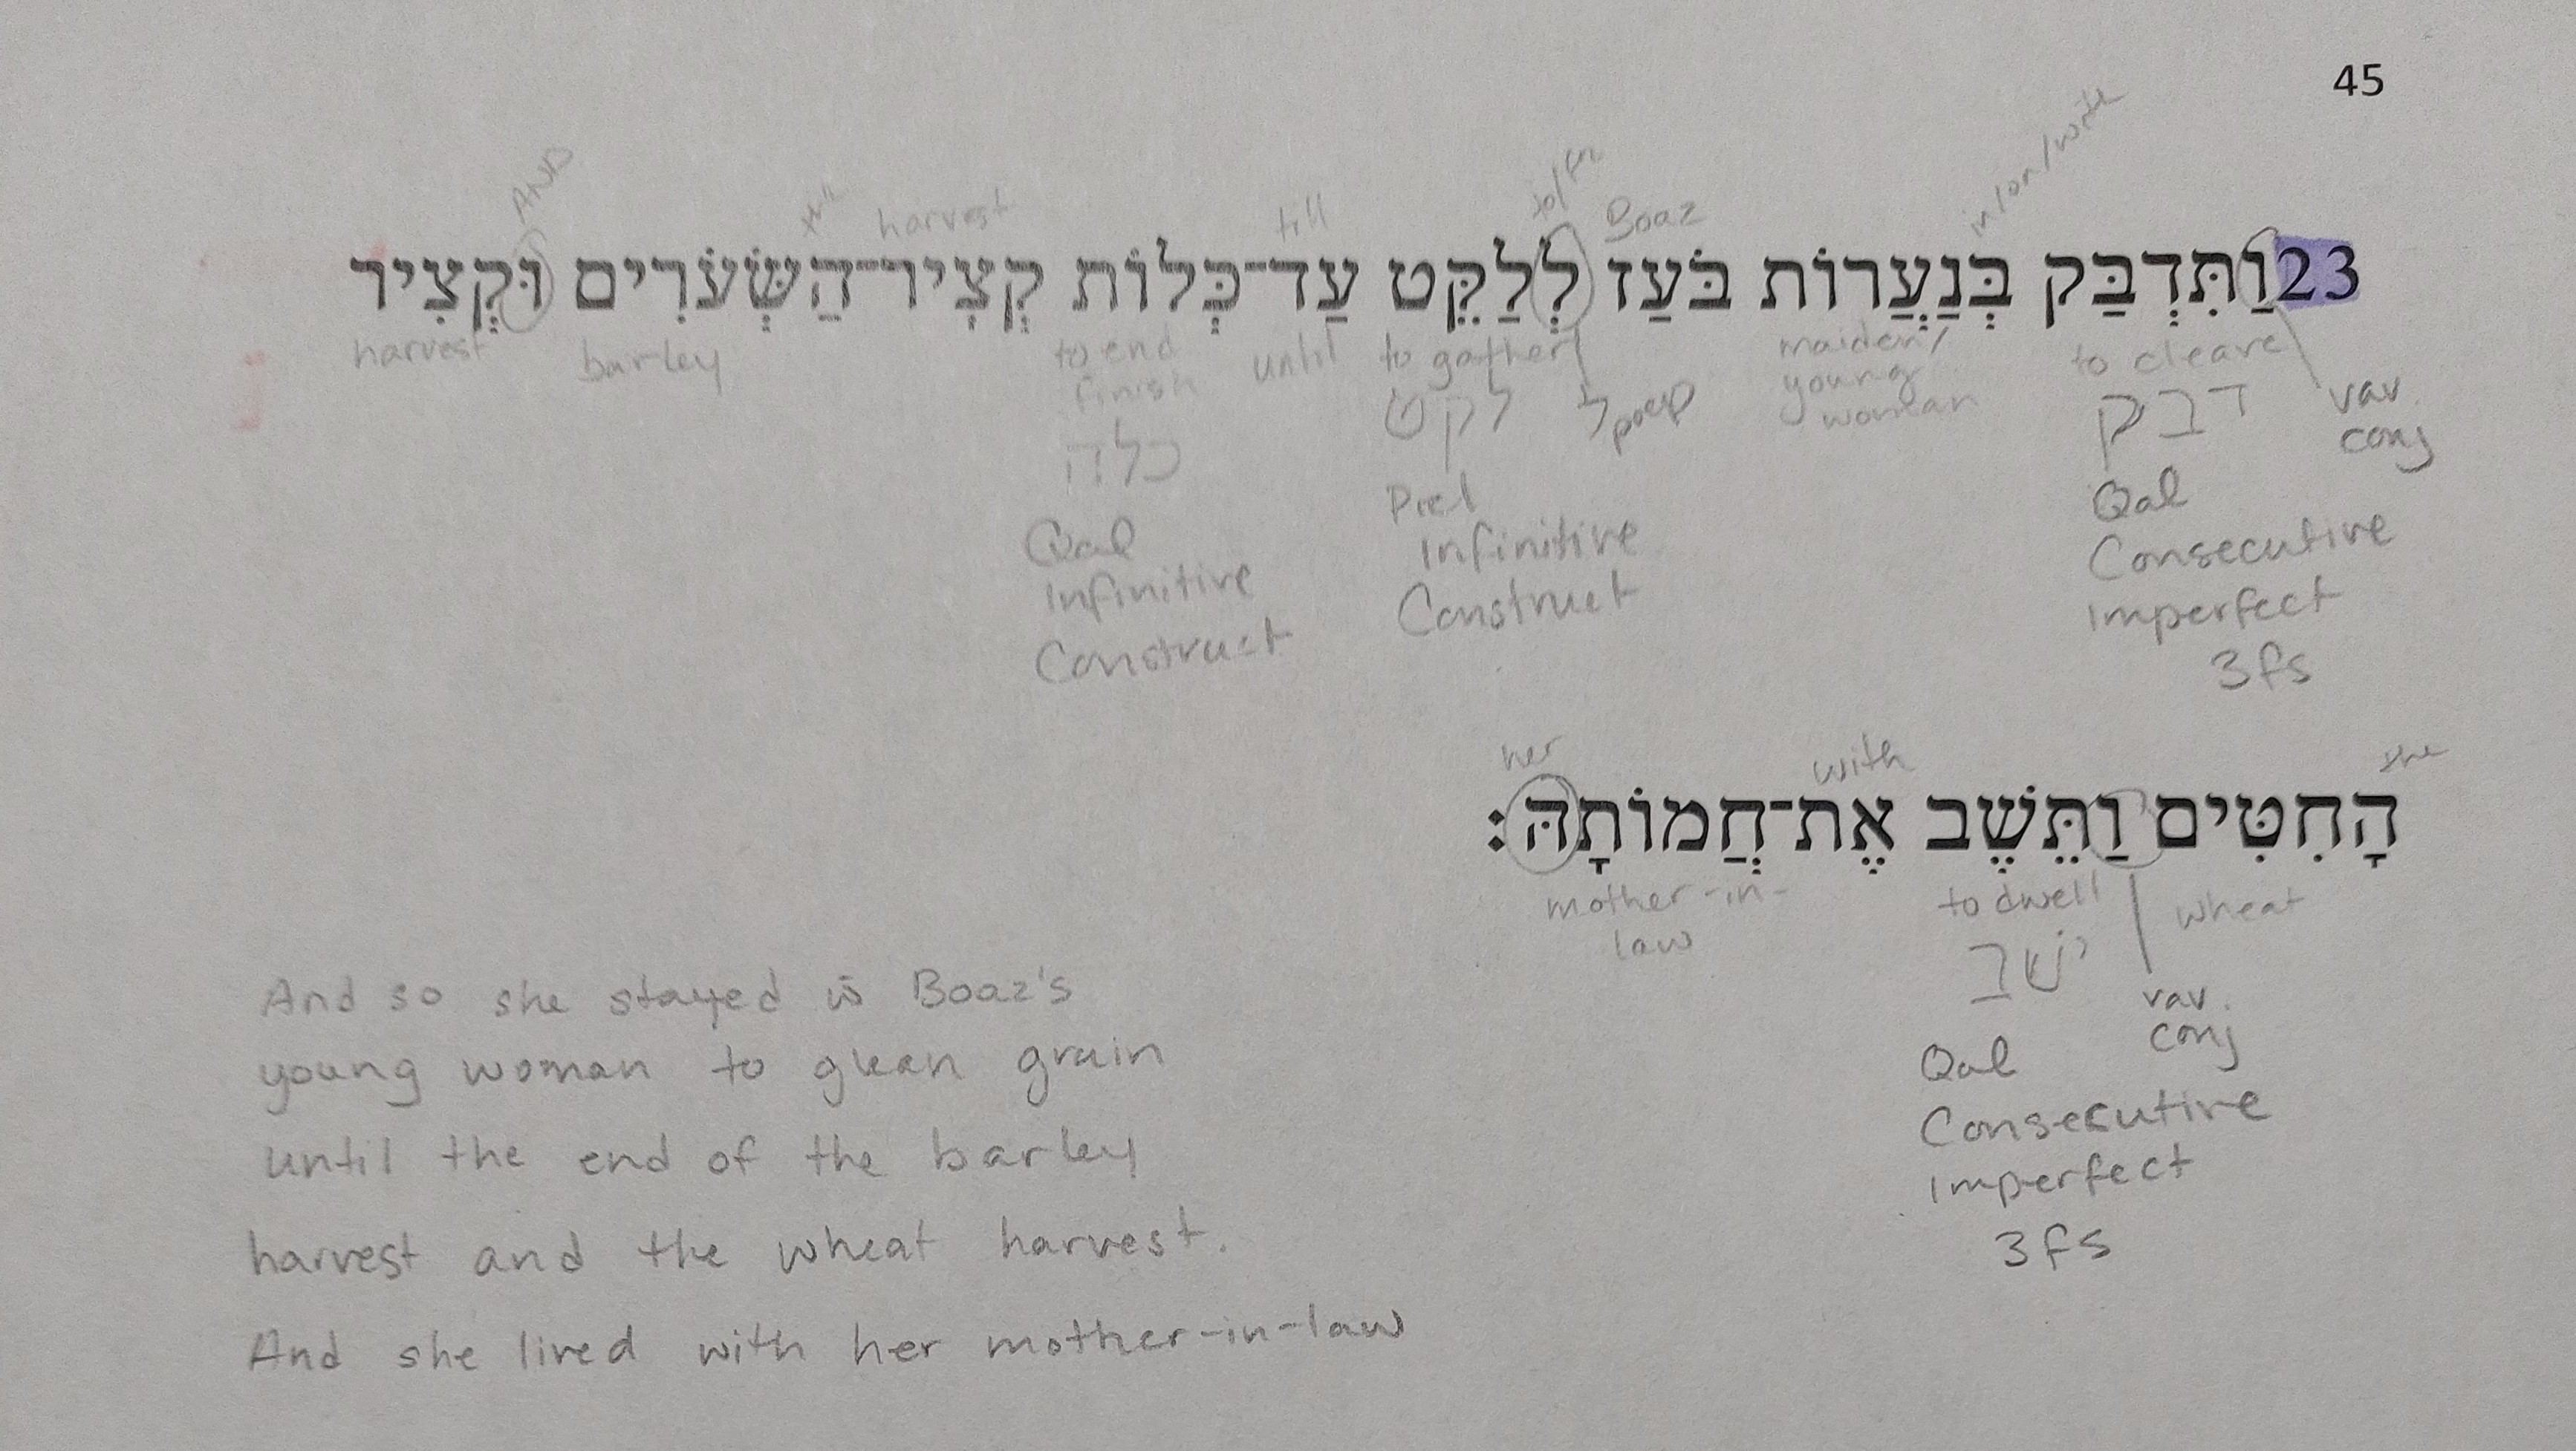 45
AND the harvest till to/for Boaz in/on/with
23 וַתִּדְבַּק בְּנַעֲרוֹת בֹּעַז לְלַקֵּט עַד־כְּלוֹת קְצִיר־הַשְּׂעֹרִים וּקְצִיר
harvest barley to end until to gather maiden/ to cleave
finish young vav
woman conj
כלה לקט ל prep דבק
Qal Piel Qal
Infinitive Infinitive Consecutive
Construct Construct Imperfect
3fs
her with the
הָחִטִּים וַתֵּשֶׁב אֶת־חֲמוֹתָהּ׃
mother-in- to dwell wheat
law ישב vav
conj
Qal
Consecutive
Imperfect
3fs
And so she stayed Boaz's
young woman to glean grain
until the end of the barley
harvest and the wheat harvest.
And she lived with her mother-in-law